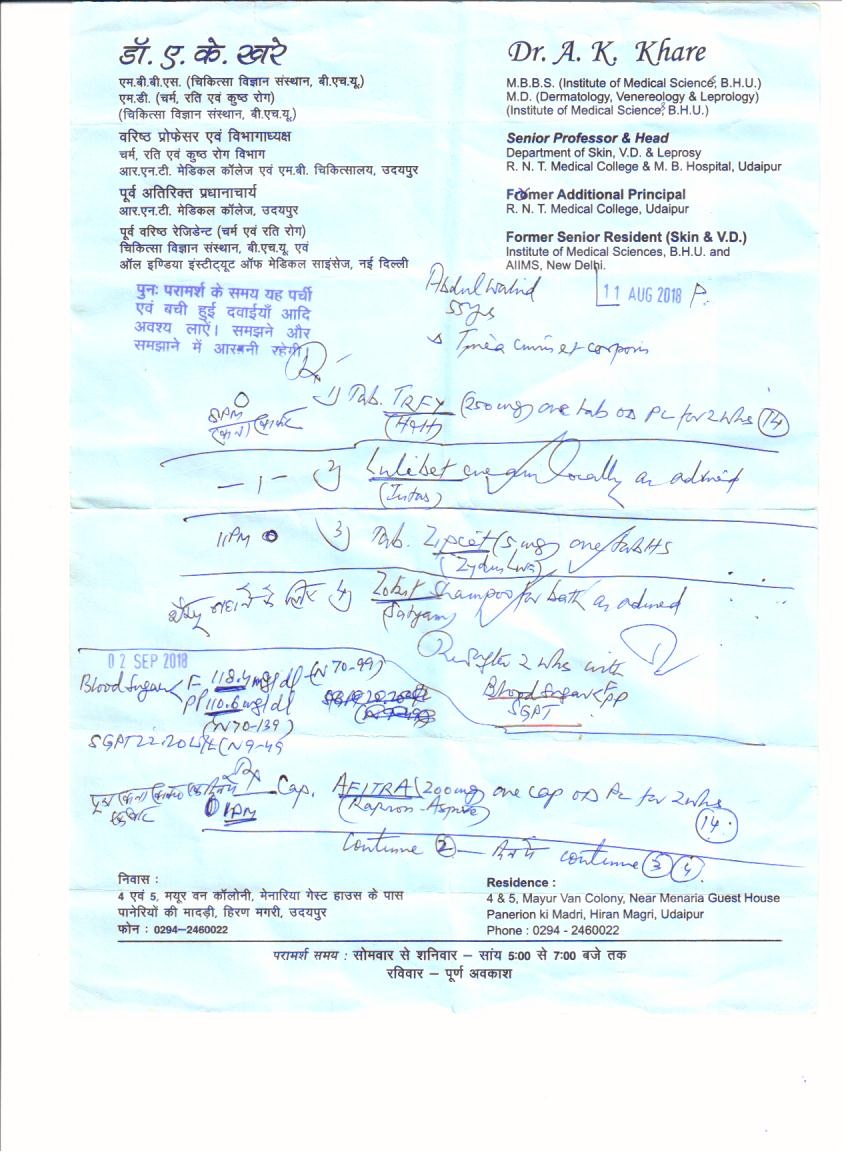 डॉ. ए. के. खरे
एम.बी.बी.एस. (चिकित्सा विज्ञान संस्थान, बी.एच.यू.)
एम.डी. (चर्म, रति एवं कुष्ठ रोग)
(चिकित्सा विज्ञान संस्थान, बी.एच.यू.)
वरिष्ठ प्रोफेसर एवं विभागाध्यक्ष
चर्म, रति एवं कुष्ठ रोग विभाग
आर.एन.टी. मेडिकल कॉलेज एवं एम.बी. चिकित्सालय, उदयपुर
पूर्व अतिरिक्त प्रधानाचार्य
आर.एन.टी. मेडिकल कॉलेज, उदयपुर
पूर्व वरिष्ठ रेजिडेन्ट (चर्म एवं रति रोग)
चिकित्सा विज्ञान संस्थान, बी.एच.यू. एवं
ऑल इण्डिया इंस्टीट्यूट ऑफ मेडिकल साइंसेज, नई दिल्ली
Dr. A. K. Khare
M.B.B.S. (Institute of Medical Science, B.H.U.)
M.D. (Dermatology, Venereology & Leprology)
(Institute of Medical Science, B.H.U.)
Senior Professor & Head
Department of Skin, V.D. & Leprosy
R. N. T. Medical College & M. B. Hospital, Udaipur
Former Additional Principal
R. N. T. Medical College, Udaipur
Former Senior Resident (Skin & V.D.)
Institute of Medical Sciences, B.H.U. and
AIIMS, New Delhi.
पुनः परामर्श के समय यह पर्ची
एवं बची हुई दवाईयाँ आदि
अवश्य लाएं। समझने और
समझाने में आसानी रहेगी।
Abdul Wahid
55 yrs
11 AUG 2018
Tinea cruris et corporis
Rx
1) Tab. (250 mg) one tab OD PC for 2 wks 14
2) Lulibet locally as advised
(Intas)
11PM 3) Tab. Zipcet (5 mg) one tab HS
4) Shampoo for bath as advised
(Satyam)
Rev after 2 wks with
Blood Sugar F PP
SGPT
02 SEP 2018
Blood Sugar F 118.4 mg/dl (N 70-99)
PP 110.6 mg/dl
(N 70-139)
SGPT 22.20
Rx Cap. AFITRA (200 mg) one cap OD PC for 2 wks
1PM
14
Continue 2 continue 3 4
निवास :
4 एवं 5, मयूर वन कॉलोनी, मेनारिया गेस्ट हाउस के पास
पानेरियों की मादड़ी, हिरण मगरी, उदयपुर
फोन : 0294-2460022
Residence :
4 & 5, Mayur Van Colony, Near Menaria Guest House
Panerion ki Madri, Hiran Magri, Udaipur
Phone : 0294 - 2460022
परामर्श समय : सोमवार से शनिवार – सांय 5:00 से 7:00 बजे तक
रविवार – पूर्ण अवकाश